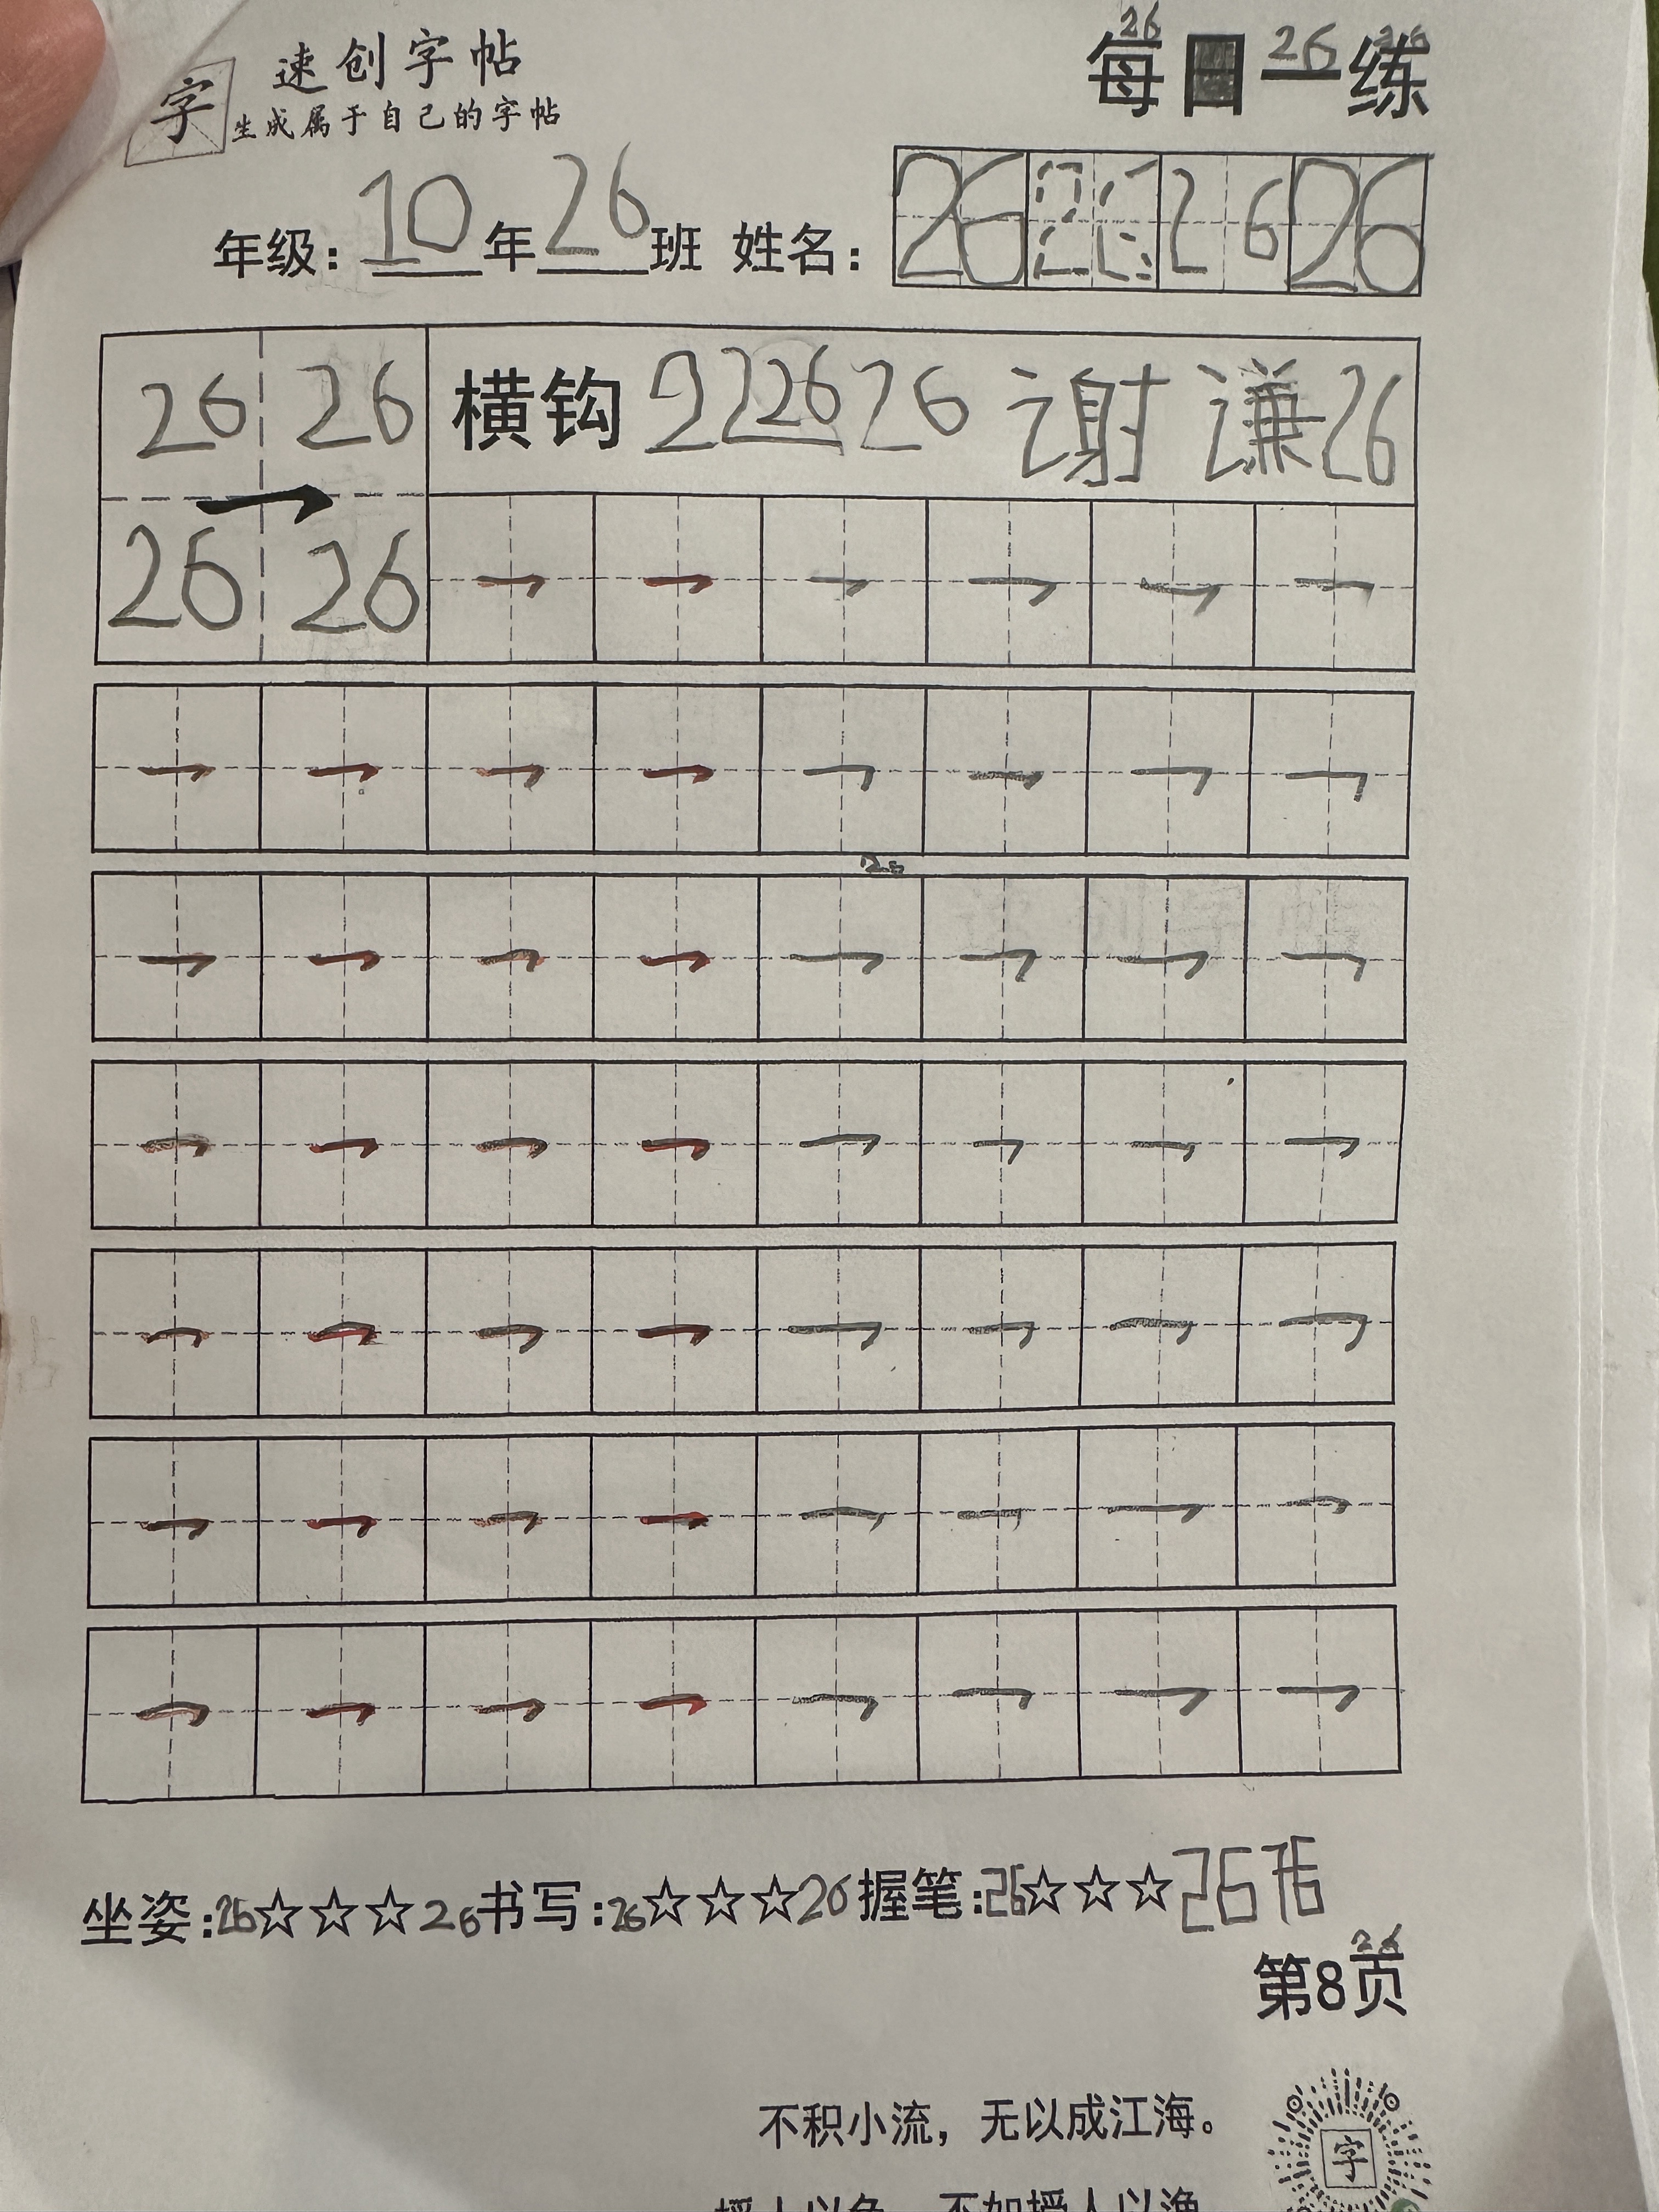 26
速创字帖 每日一练 26 26
字 生成属于自己的字帖
年级：10年26班 姓名：26 26 26 26
26 26 横钩 2 2 26 26 谢谦 26
26 26
26
坐姿：26☆☆☆26 书写：26☆☆☆26 握笔：26☆☆☆26 26
26
第8页
不积小流，无以成江海。
字